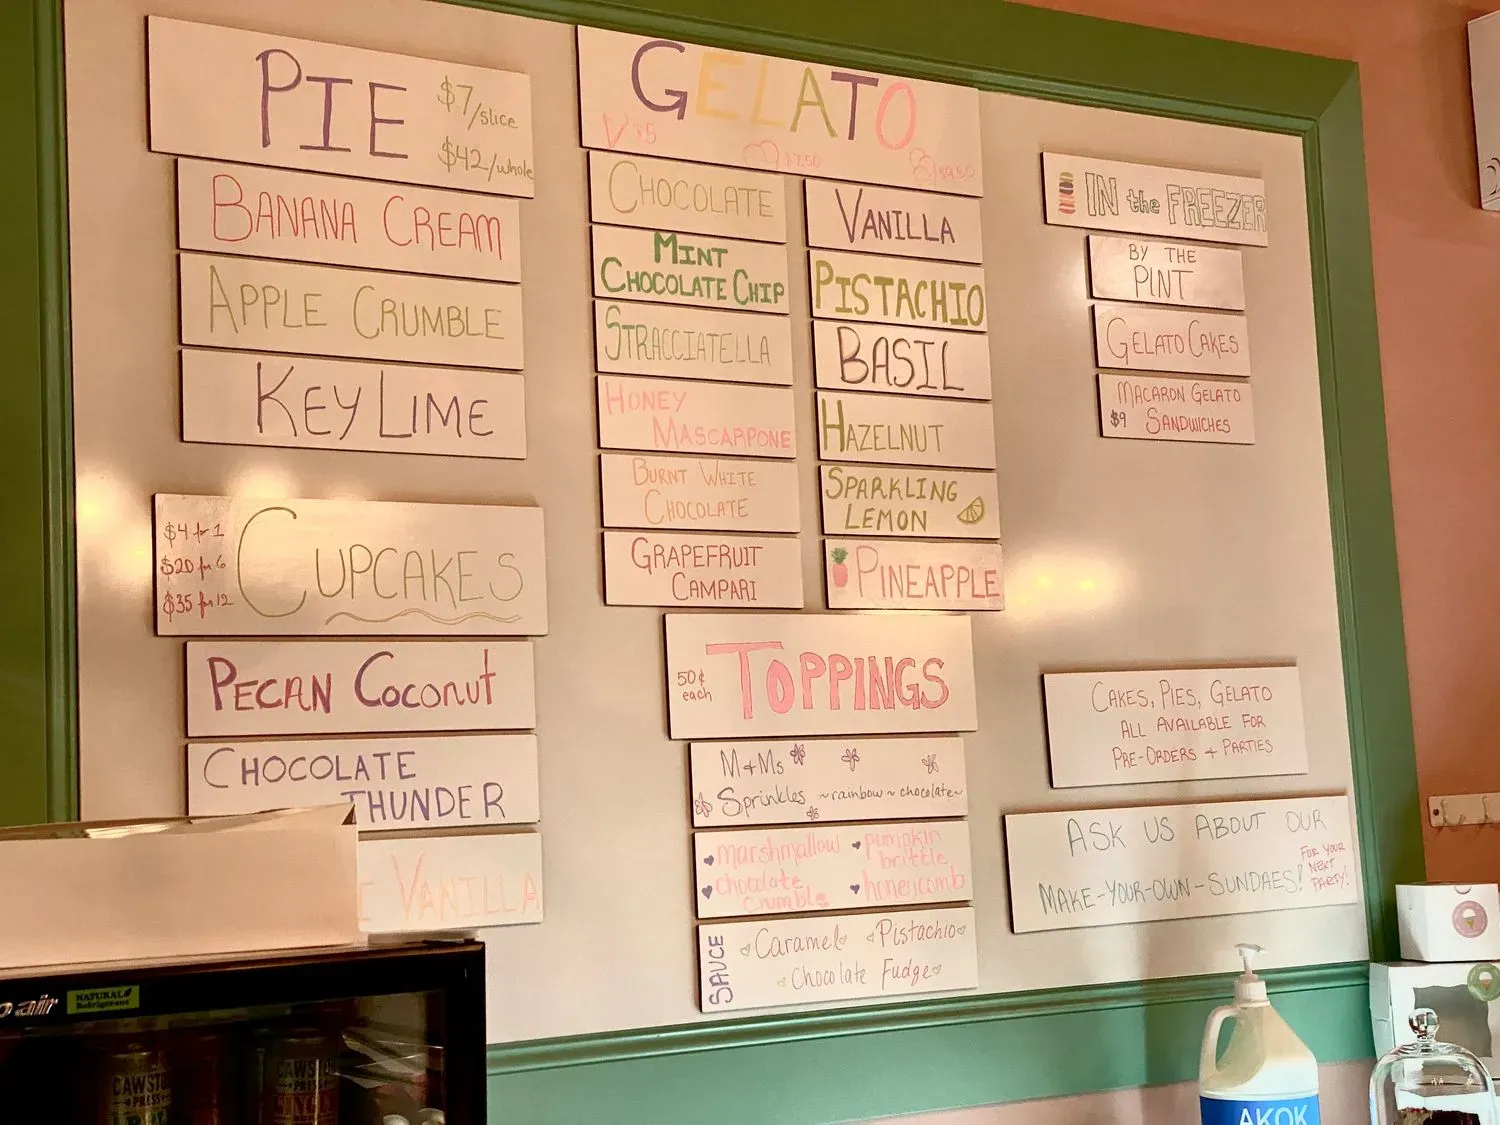 PIE
$7/slice
$42/whole
BANANA CREAM
APPLE CRUMBLE
KEY LIME
$4 for 1
$20 for 6
$35 for 12
CUPCAKES
PECAN COCONUT
CHOCOLATE
THUNDER
VANILLA
GELATO
$5
$7.50
$9.50
CHOCOLATE
MINT
CHOCOLATE CHIP
STRACCIATELLA
HONEY
MASCARPONE
BURNT WHITE
CHOCOLATE
GRAPEFRUIT
CAMPARI
VANILLA
PISTACHIO
BASIL
HAZELNUT
SPARKLING
LEMON
PINEAPPLE
50¢
each
TOPPINGS
M+Ms
Sprinkles ~rainbow~chocolate~
marshmallow
pumpkin
brittle
chocolate
crumble
honeycomb
SAUCE
Caramel
Pistachio
Chocolate Fudge
IN the FREEZER
BY THE
PINT
GELATO CAKES
MACARON GELATO
$9 SANDWICHES
CAKES, PIES, GELATO
ALL AVAILABLE FOR
PRE-ORDERS + PARTIES
ASK US ABOUT OUR
MAKE-YOUR-OWN-SUNDAES!
FOR YOUR
NEXT
PARTY!
air
NATURAL
Refrigerant
CAWST
PRESS
CAWSTON
PRESS
AKOK